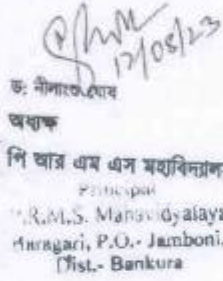 17/08/23
ড: নীলাংত ঘোষ
অধ্যক্ষ
পি আর এম এস মহাবিদ্যালয়
Principal
.R.M.S. Mahavidyalaya
P.O.- Jamboni,
Dist.- Bankura